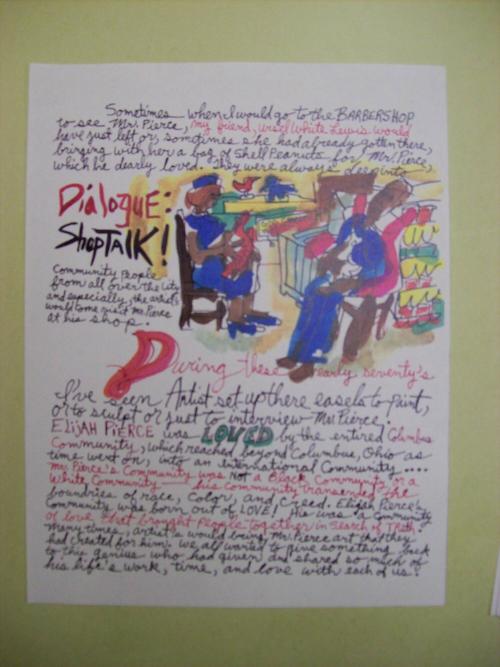 Sometimes when I would go to the BARBERSHOP
to see Mr. Pierce, my friend, Ursel White Lewis would
have just left or, somtimes she had already gotten there,
bringing with her a bag of Shell Peanuts for Mr. Pierce,
which he dearly loved. They were always deep into
Dialogue:
ShopTALK!
Community People
from all over the City
and especially, the artist's
would come visit Mr. Pierce
at his shop.
During these early Seventy's
I've seen Artist set up there easels to paint,
or to sculpt or just to interview Mr. Pierce.
ELIJAH PIERCE was LOVED by the entired Columbus
Community, which reached beyond Columbus, Ohio as
time went on, into an international Community ....
Mr. Pierce's Community was Not a Black Community or a
White Community his community transended the
boundries of race, Color, and Creed. Elijah Pierce's
Community was born out of LOVE! His was a Community
of love that brought People together in Search of Truth.
Many times, artist's would bring Mr. Pierce art that they
had created for him. We all wanted to give something back
to this genius who had given and shared so much of
his life's work, time, and love with each of us.